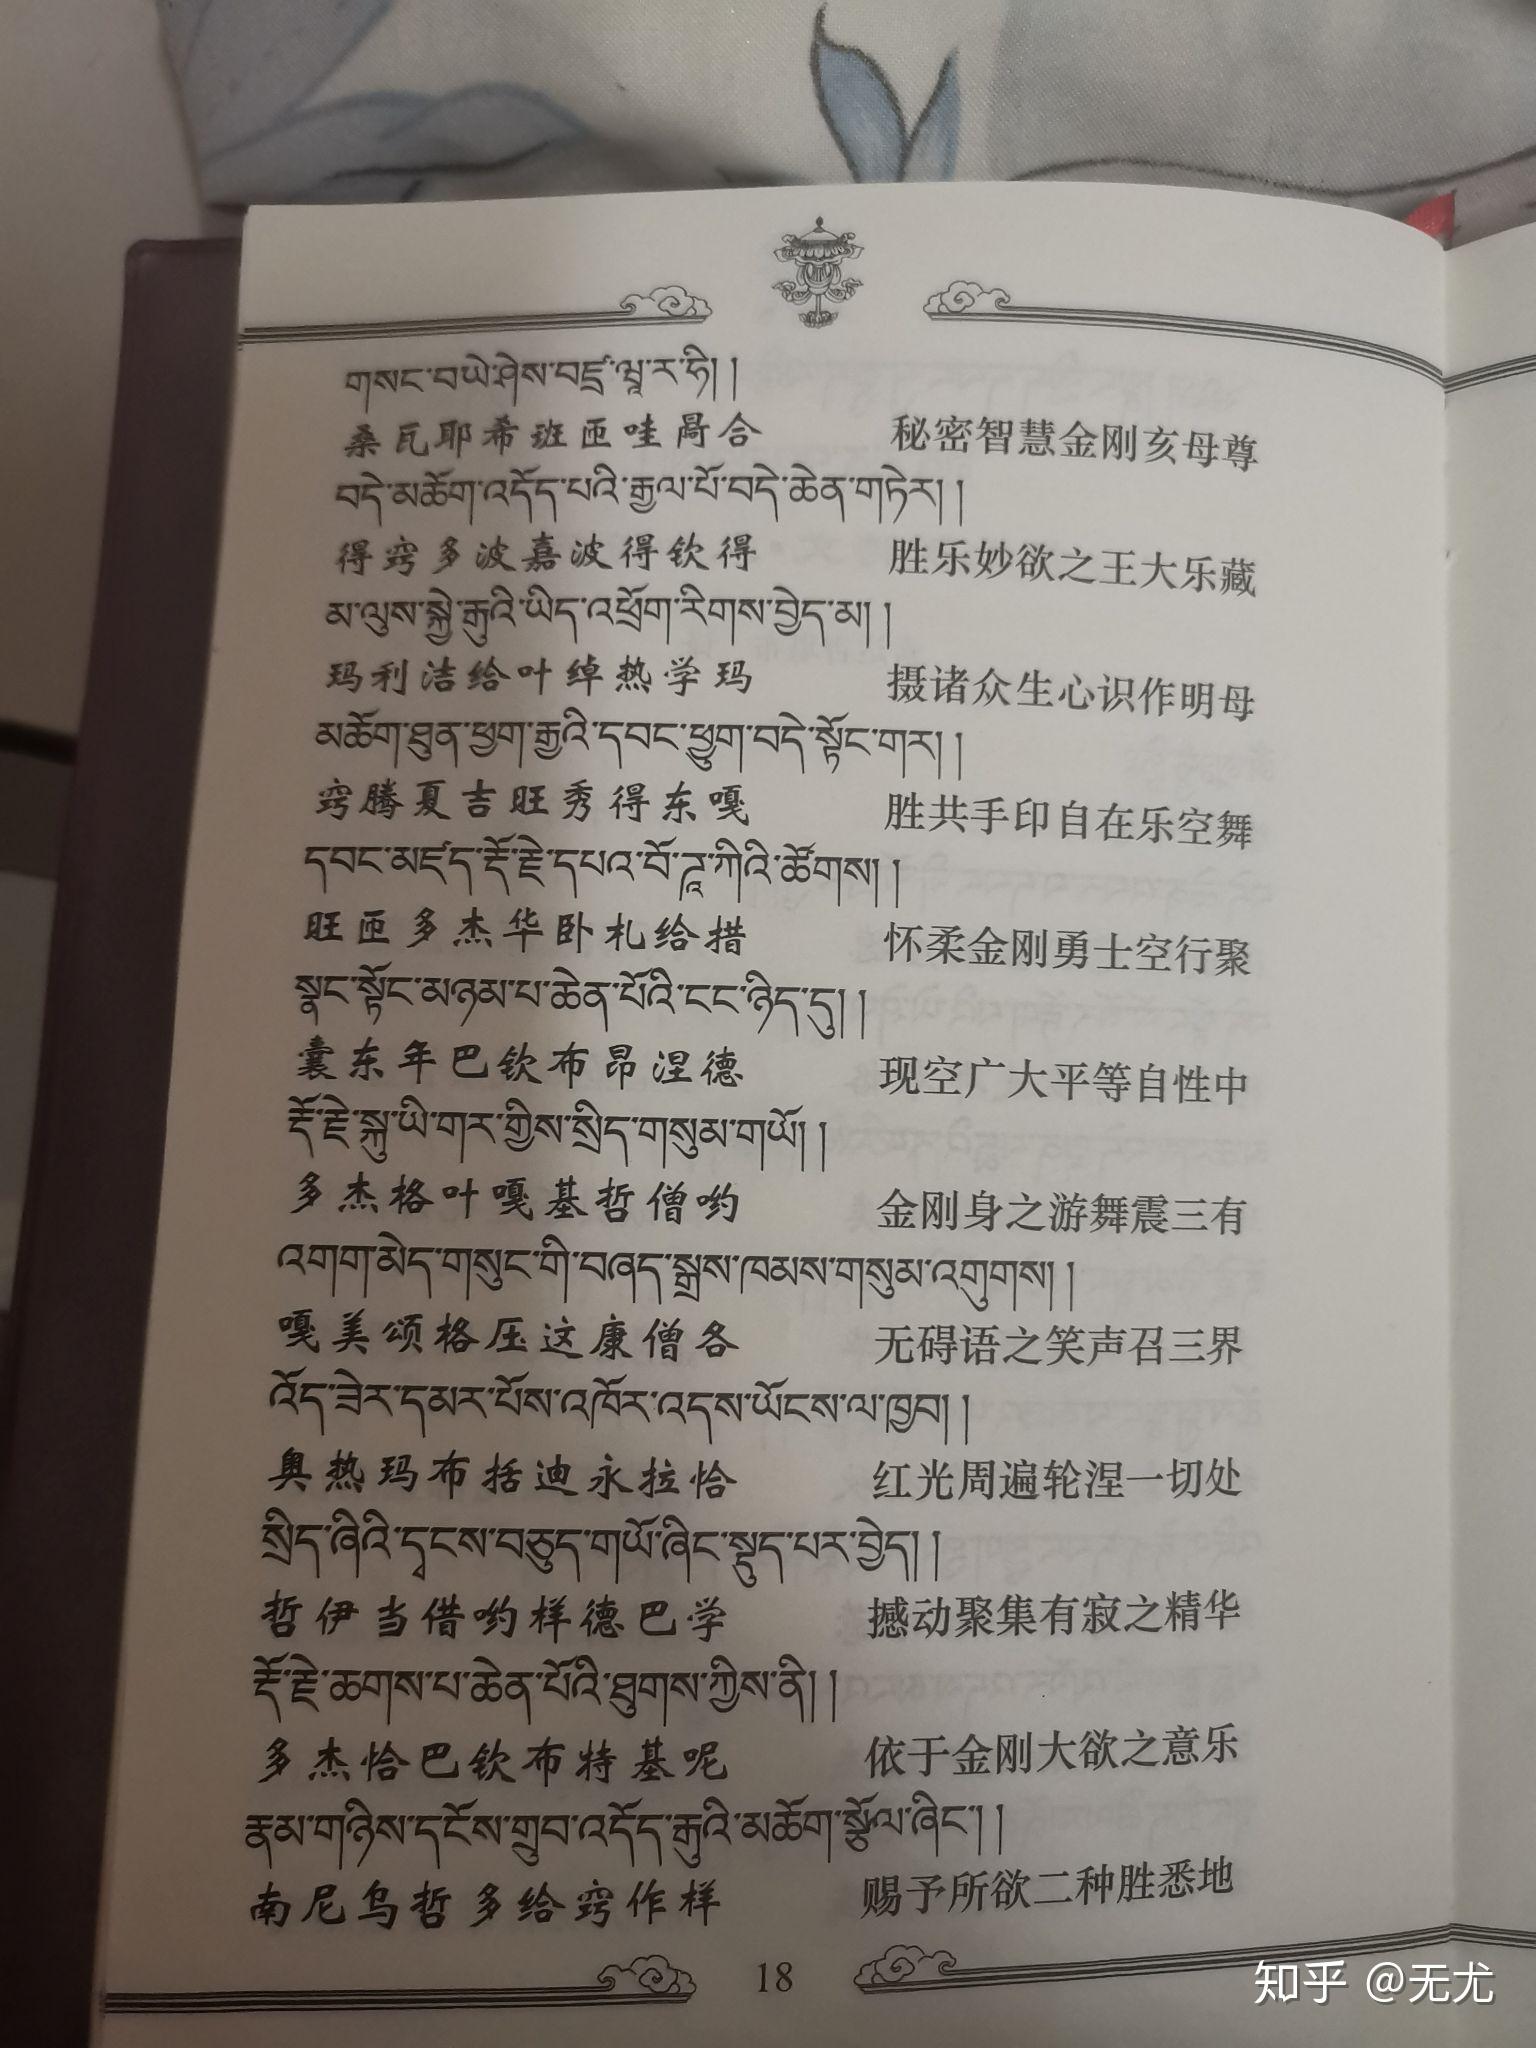 གསང་བ་ཡེ་ཤེས་བཛྲ་ཝཱ་ར་ཧི། །
桑瓦耶希班匝哇呙合 秘密智慧金刚亥母尊
བདེ་མཆོག་འདོད་པའི་རྒྱལ་པོ་བདེ་ཆེན་གཏེར། །
得窍多波嘉波得钦得 胜乐妙欲之王大乐藏
མ་ལུས་སྐྱེ་རྒུའི་ཡིད་འཕྲོག་རིགས་བྱེད་མ། །
玛利洁给叶绰热学玛 摄诸众生心识作明母
མཆོག་ཐུན་ཕྱག་རྒྱའི་དབང་ཕྱུག་བདེ་སྟོང་གར། །
窍腾夏吉旺秀得东嘎 胜共手印自在乐空舞
དབང་མཛད་རྡོ་རྗེ་དཔའ་བོ་ཌཱ་ཀིའི་ཚོགས། །
旺匝多杰华卧札给措 怀柔金刚勇士空行聚
སྣང་སྟོང་མཉམ་པ་ཆེན་པོའི་ངང་ཉིད་དུ། །
囊东年巴钦布昂涅德 现空广大平等自性中
རྡོ་རྗེ་སྐུ་ཡི་གར་གྱིས་སྲིད་གསུམ་གཡོ། །
多杰格叶嘎基哲僧哟 金刚身之游舞震三有
འགག་མེད་གསུང་གི་བཞད་སྒྲས་ཁམས་གསུམ་འགུགས། །
嘎美颂格压这康僧各 无碍语之笑声召三界
འོད་ཟེར་དམར་པོས་འཁོར་འདས་ཡོངས་ལ་ཁྱབ། །
奥热玛布括迪永拉恰 红光周遍轮涅一切处
སྲིད་ཞིའི་དྭངས་བཅུད་གཡོ་ཞིང་སྡུད་པར་བྱེད། །
哲伊当借哟样德巴学 撼动聚集有寂之精华
རྡོ་རྗེ་ཆགས་པ་ཆེན་པོའི་ཐུགས་ཀྱིས་ནི། །
多杰恰巴钦布特基呢 依于金刚大欲之意乐
རྣམ་གཉིས་དངོས་གྲུབ་འདོད་རྒུའི་མཆོག་སྩོལ་ཞིང་། །
南尼乌哲多给窍作样 赐予所欲二种胜悉地
18
知乎 @无尤